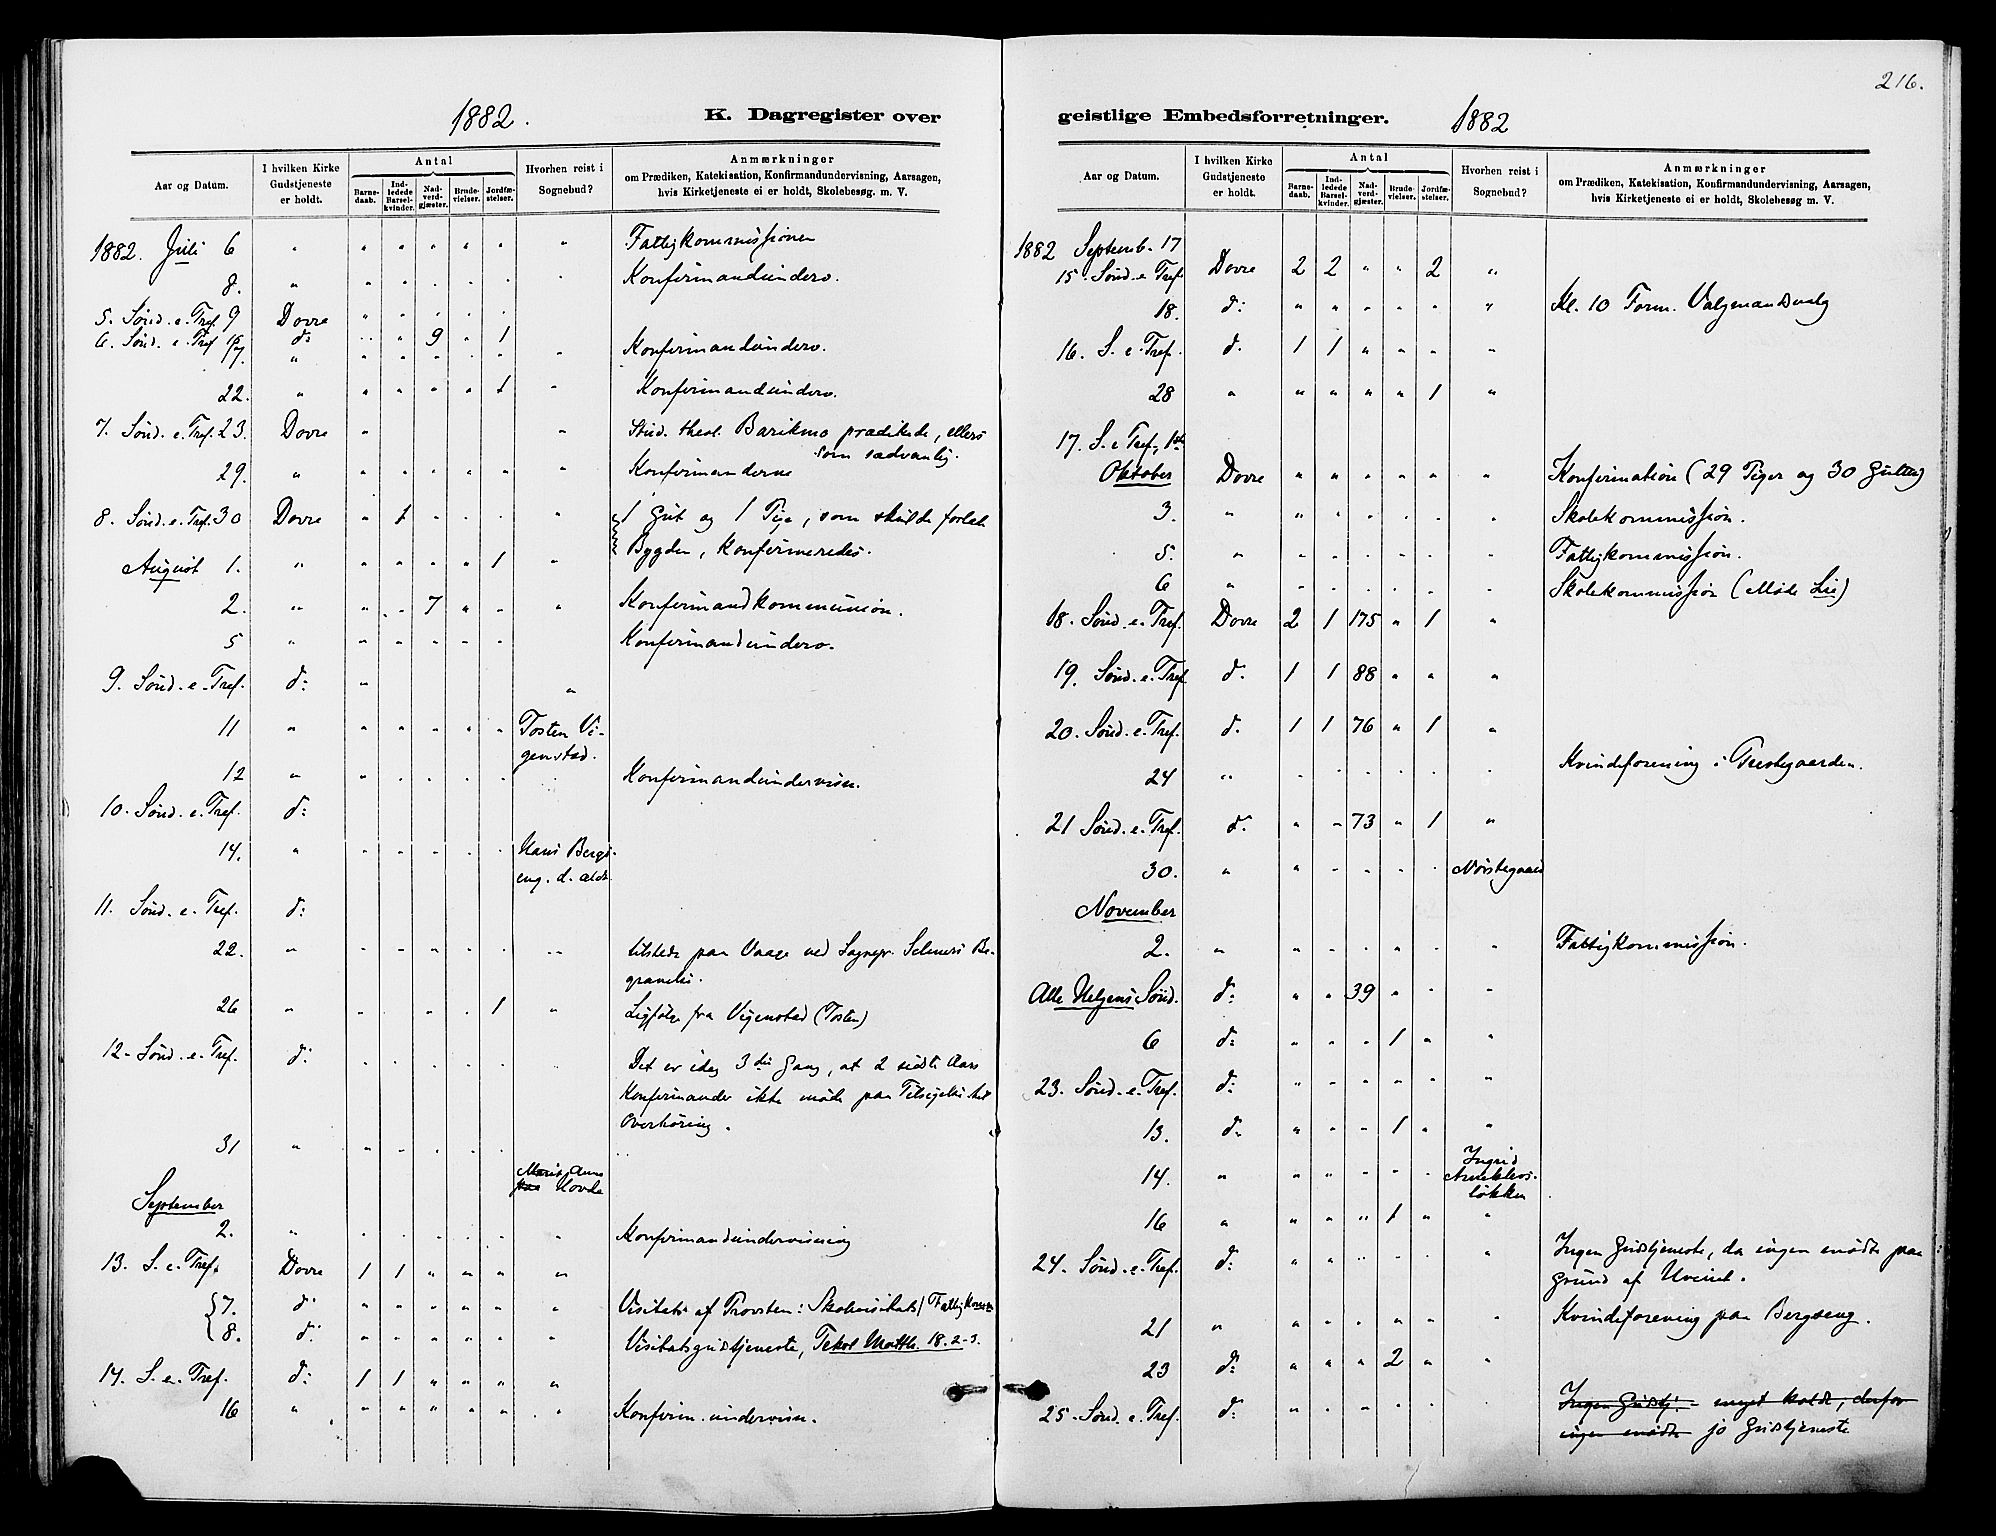 1882.
K. Dagregister over
Aar og Datum.
I hvilken Kirke Gudstjeneste er holdt.
Antal
Barnedaab.
Indledede Barselkvinder.
Nadverdgjæster.
Brudevielser.
Jordfæstelser.
Hvorhen reist i Sognebud?
Anmærkninger
om Prædiken, Katekisation, Konfirmandundervisning, Aarsagen,
hvis Kirketjeneste ei er holdt, Skolebesøg m. V.
1882. Juli 6 " " " " " " " Fattigkommissionen
8. " " " " " " " Konfirmandunderv.
5. Sønd. e. Tref. 9 Dovre " " " " "
6. Sønd. e. Tref 16 d: " " 9 " 1
17. " " " " " " " Konfirmandunderv.
22. " " " " " 1 " Konfirmandunderv.
7. Sønd. e. Tref. 23. Dovre " " Stud. theol. Barikmo prædikede, ellers
som sædvanlig.
29. " " " " " " " Konfirmanderne
8. Sønd. e. Tref. 30 Dovre " 1 " " " " 1 Gut og 1 Pige, som skulde forlade
Bygden, konfirmeredes.
August 1. " " " " " 1 "
2. " " " 7 " " " Konfirmandkommunion.
5 " " " " " " Konfirmandunderv.
9. Sønd. e. Tref. d: " "
11 " " " " " " Tosten Vi-
genstad.
12 " " " " " " Konfirmandundervisn.
10. Sønd. e. Tref. d:
14. " " " " " " Hans Bergs-
eng. d. ældr.
11. Sønd. e. Tref. d:
22. " " " " " " " tilstede paa Vaage ved Sognepr. Selmers Be-
gravelse.
26 " " " " 1 " Ligfølge fra Vigenstad (Tosten)
12. Sønd. e. Tref. d: " " " " " Det er idag 3die Gang, at 2 sidste Aars
Konfirmander ikke møde paa Tilsigelse til
Overhøring.
31 " " " " " "
Marit, Anne
paa Hovde
September
2. " " " " " " " Konfirmandundervisning
13. S. e. Tref. Dovre 1 1 " " " "
7. d: " " " " " " Visitats af Provsten: Skolevisitats/Fattigkomm
8. d: " " " " " " Visitatsgudstjeneste, Tekst Matth. 18.2-3.
14. S. e. Tref. d: 1 1 " " " "
16 " " " " " " " Konfirm.undervisn.
216.
geistlige Embedsforretninger.
1882
Aar og Datum.
I hvilken Kirke Gudstjeneste er holdt.
Antal
Barnedaab.
Indledede Barselkvinder.
Nadverdgjæster.
Brudevielser.
Jordfæstelser.
Hvorhen reist i Sognebud?
Anmærkninger
om Prædiken, Katekisation, Konfirmandundervisning, Aarsagen,
hvis Kirketjeneste ei er holdt, Skolebesøg m. V.
1882 Septemb. 17
15. Sønd. e. Tref. Dovre 2 2 " " 2 "
18. d: " " " " " " Kl. 10 Form. Valgmandsvalg
16. S. e. Tref. d. 1 1 " " " "
28 " " " " " 1 "
17. S. e Tref., 1ste
Oktober Dovre " " " " " " Konfirmation (29 Piger og 30 Gutter)
3. " " " " " " " Skolekommission.
5. " " " " " " " Fattigkommission.
6 " " " " " " " Skolekommission (Møde Lie)
18. Sønd. e. Tref. Dovre 2 1 175 " 1 "
19. Sønd. e. Tref d. 1 1 88 " " "
20. Sønd. e. Tref. d. 1 1 76 " 1 "
24 " " " " " " " Kvindeforening i Prestegaarden.
21 Sønd. e. Tref. d. " " 73 " 1 "
30. " " " " " " Nørstegaard
November
2. " " " " " " " Fattigkommission.
Alle Helgens Sønd. d: " " 39 " " "
6 d: " " " 1 " "
23. Sønd. e. Tref. d: " " " " " "
13. d: " " " 1 " "
14. " " " " " " Ingrid
løkken
16 " " " " 1 " "
24. Sønd. e. Tref. d: " " " " " " Ingen Gudstjeneste, da ingen mødte paa
Grund af Uveiret.
21 " " " " " " " Kvindeforening paa Bergseng.
23 d: " " " 2 " "
25. Sønd. e. Tref. d: " " " " " " Ingen Gudstj. - meget koldt, derfor
ingen mødte jo Gudstjeneste